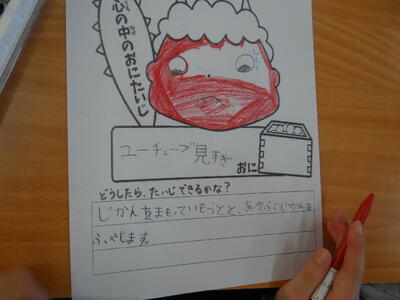 心の中のおにたいじ
ユーチューブ見すぎ
おに
どうしたら、たいじできるかな？
じかんをまもっていもうとと、あそぶじかんを
ふやします。